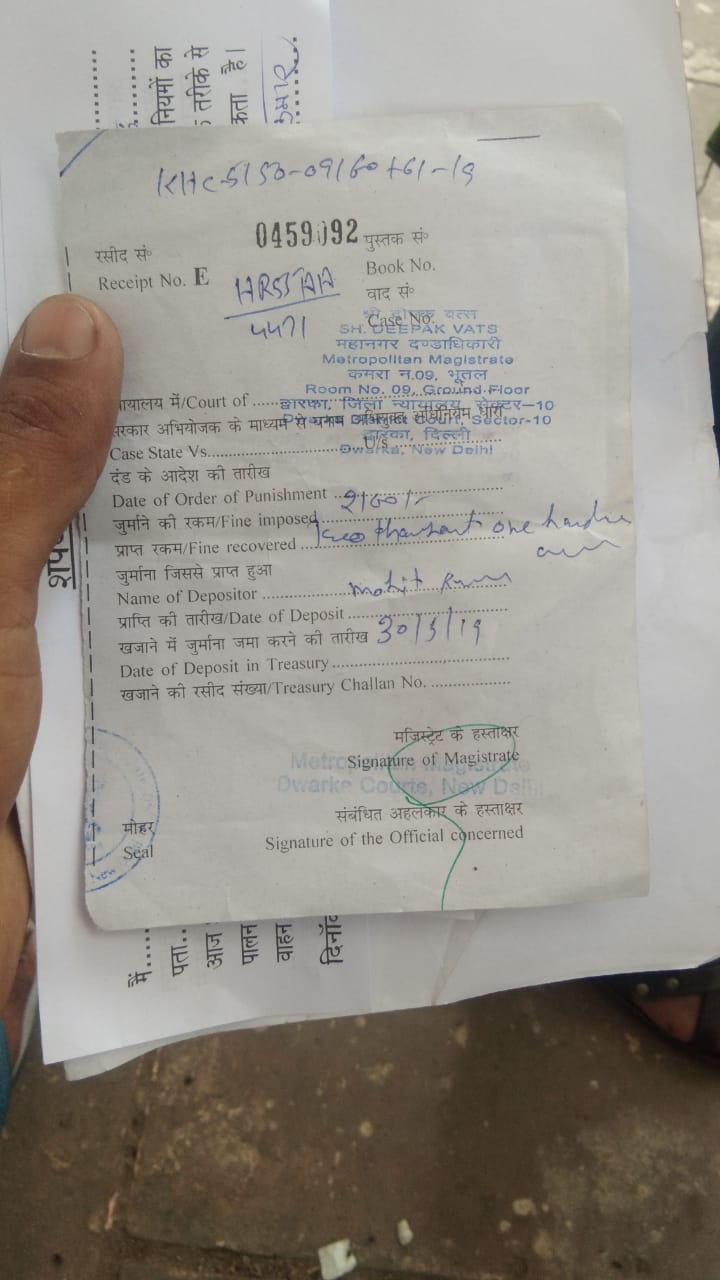 नियमों का
तरीके से
कता है।
कुमार
0459092
रसीद सं०
पुस्तक सं०
Receipt No. E
Book No.
वाद सं०
Case No.
SH. DEEPAK VATS
महानगर दण्डाधिकारी
Metropolitan Magistrate
कमरा न.09, भूतल
Room No. 09, Ground Floor
यायालय में/Court of
द्वारका, जिला न्यायालय, सेक्टर-10
District Court, Sector-10
सरकार अभियोजक के माध्यम से बनाम अभियुक्त अधिनियम धारा
Case State Vs. U/s
द्वारका, दिल्ली
Dwarka, New Delhi
दंड के आदेश की तारीख
Date of Order of Punishment
जुर्माने की रकम/Fine imposed 2100/-
प्राप्त रकम/Fine recovered one
जुर्माना जिससे प्राप्त हुआ
Name of Depositor Mohit
प्राप्ति की तारीख/Date of Deposit
खजाने में जुर्माना जमा करने की तारीख 30/5/19
Date of Deposit in Treasury
खजाने की रसीद संख्या/Treasury Challan No.
मजिस्ट्रेट के हस्ताक्षर
Signature of Magistrate
Metropolitan Magistrate
Dwarka Courts, New Delhi
संबंधित अहलकार के हस्ताक्षर
Signature of the Official concerned
मोहर
Seal
मैं
पता
आज
पालन
वाहन